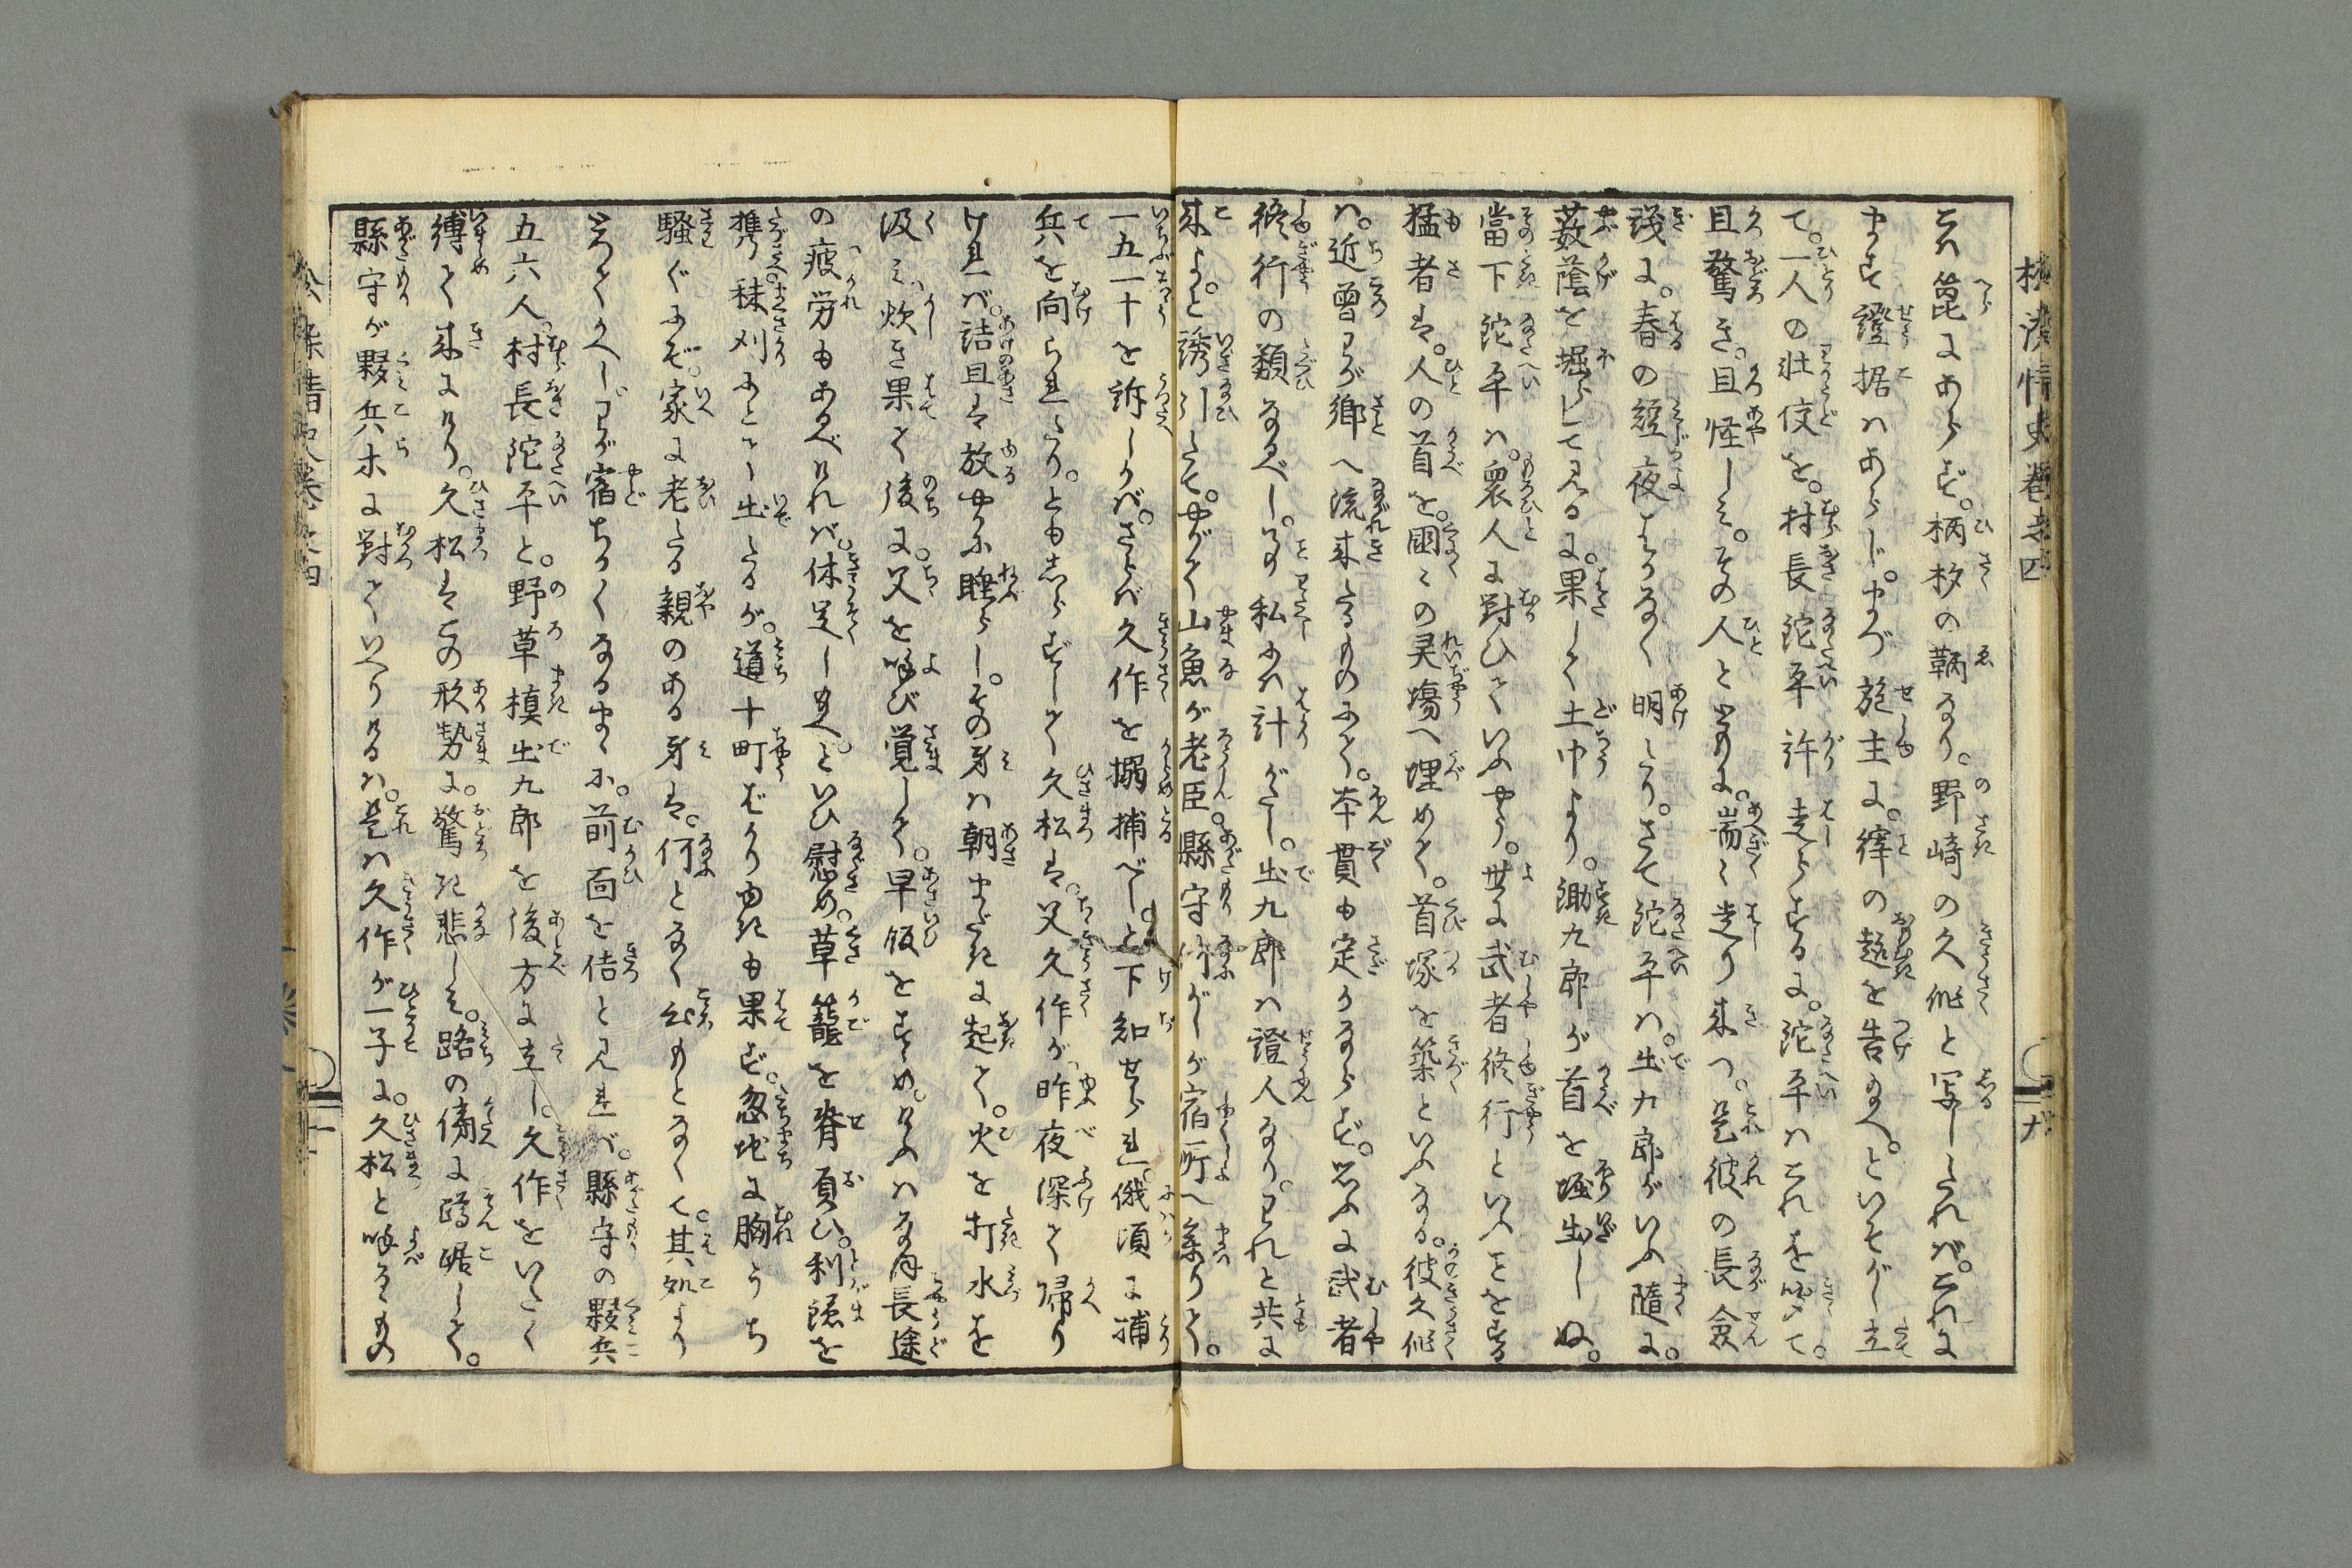 こは篦にあらず。柄杓の鞆なり。野崎の久作と写したれば。これに
ます證据はあらじ。まづ施主に。縡の趣を告給へ。といそがし立
て。一人の壮佼を。村長陀平許走らする に。陀平はこれを聞て。
且驚き。且怪しみ。その人と共に。喘々走り来つ。是彼の長僉
議に。春の短夜はかなく明たり。さて陀平は。出九郎がいふ随に。
薮蔭を堀らして見るに。果して土中より。鋤九郎が首を堀出しぬ。
當下陀平は。衆人に對ひていふやう。世に武者修行といふことをする
猛者は。人の首を。國々の灵塲へ埋めて。首塚を築といふなる。彼久作
は。近曾わが郷へ流来たるものにて。本貫も定かならず。思ふに武者
修行の類なるべし。こは私には計がたし。出九郎は證人なり。われと共に
来よ。と誘引たて。やがて山魚が老臣。縣守何がしが宿所へ参りて。
一五一十を訴しかば。さらば久作を搦捕べし。と下知せられ。俄頃に捕
兵を向られたり。とも志らずして久松は。父久作が昨夜深て帰り
ければ。詰旦は放やかに睡らし。その身は朝まだきに起て。火を打水を
汲み。炊き果て後に。父を呼び覚して。早飯をすゝめ。けふはな月長途
の疲労もあるべければ。休足し給へ。といひ慰め。草籠を脊負ひ。利鎌を
携。秣刈にとて出たるが。道十町ばかりゆきも果ず。忽地に胸うち
騒ぐにぞ。家に老たる親のある身は。何となく心もとなくて。其処より
立かへし。わが宿ちかくなるまゝに。前面を佶と見れば。縣守の夥兵
五六人。村長陀平と。野草模出九郎を後方に立し。久作をいたく
縛て来にけり。久松はこの形勢に。驚き悲しみ。路の傍に蹲踞して。
縣守が夥兵ホに對ていへりけるは。是は久作が一子に。久松と呼るゝもの